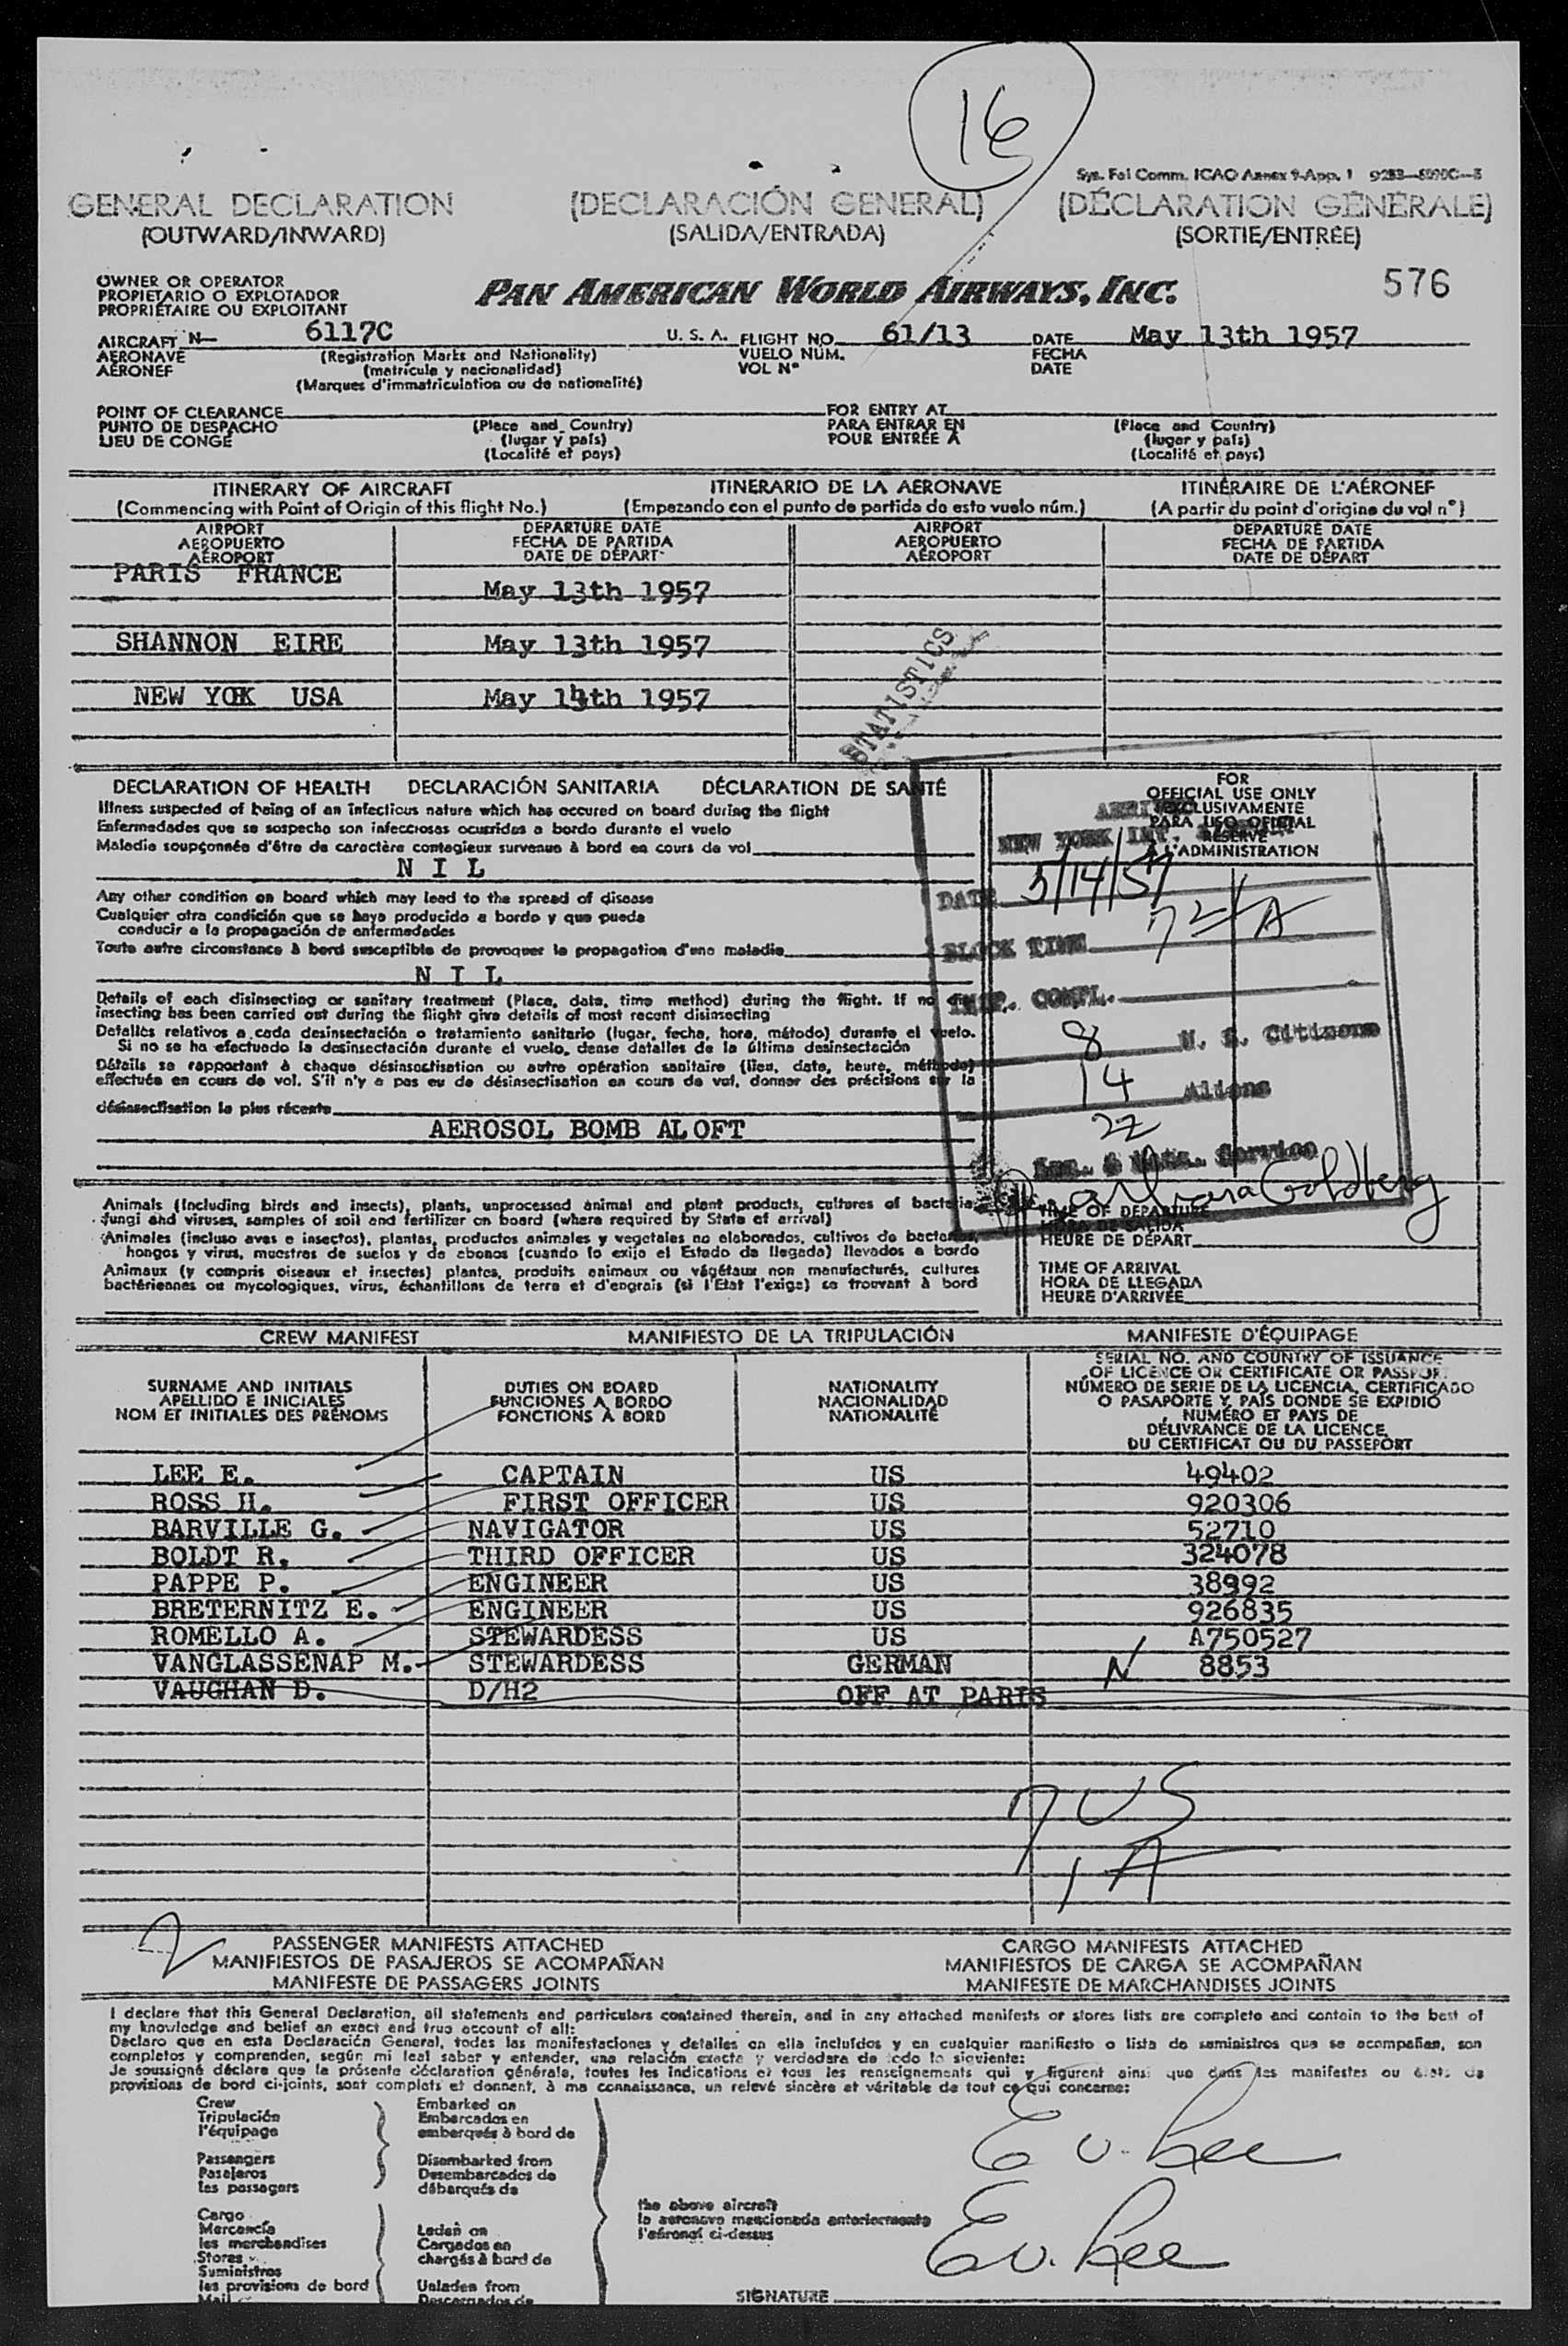 16
Sys. Fal Comm. ICAO Annex 9-App. 1
GENERAL DECLARATION (DECLARACIÓN GENERAL) (DÉCLARATION GÉNÉRALE)
(OUTWARD/INWARD) (SALIDA/ENTRADA) (SORTIE/ENTRÉE)
OWNER OR OPERATOR
PROPIETARIO O EXPLOTADOR
PROPRIÉTAIRE OU EXPLOITANT
PAN AMERICAN WORLD AIRWAYS, INC.
576
AIRCRAFT N— 6117C U. S. A. FLIGHT NO. 61/13 DATE May 13th 1957
AERONAVE (Registration Marks and Nationality) VUELO NÚM. FECHA
AÉRONEF (matrícula y nacionalidad) VOL N° DATE
(Marques d'immatriculation ou de nationalité)
POINT OF CLEARANCE FOR ENTRY AT
PUNTO DE DESPACHO (Place and Country) PARA ENTRAR EN (Place and Country)
LIEU DE CONGÉ (lugar y país) POUR ENTRÉE À (lugar y país)
(Localité et pays) (Localité et pays)
ITINERARY OF AIRCRAFT ITINERARIO DE LA AERONAVE ITINÉRAIRE DE L'AÉRONEF
(Commencing with Point of Origin of this flight No.) (Empezando con el punto de partida de esto vuelo núm.) (A partir du point d'origine du vol n°)
AIRPORT DEPARTURE DATE AIRPORT DEPARTURE DATE
AEROPUERTO FECHA DE PARTIDA AEROPUERTO FECHA DE PARTIDA
AÉROPORT DATE DE DÉPART AÉROPORT DATE DE DÉPART
PARIS FRANCE May 13th 1957
SHANNON EIRE May 13th 1957
NEW YOK USA May 14th 1957
STATISTICS
DECLARATION OF HEALTH DECLARACIÓN SANITARIA DÉCLARATION DE SANTÉ
Illness suspected of being of an infectious nature which has occured on board during the flight
Enfermedades que se sospecha son infecciosas ocurridas a bordo durante el vuelo
Maladie soupçonnée d'être de caractère contagieux survenue à bord en cours de vol
N I L
Any other condition on board which may lead to the spread of disease
Cualquier otra condición que se haya producido a bordo y que pueda
conducir a la propagación de enfermedades
Toute autre circonstance à bord susceptible de provoquer la propagation d'une maladie
N I L
Details of each disinsecting or sanitary treatment (Place, date, time method) during the flight. If no dis-
insecting has been carried out during the flight give details of most recent disinsecting
Detalles relativos a cada desinsectación o tratamiento sanitario (lugar, fecha, hora, método) durante el vuelo.
Si no se ha efectuado la desinsectación durante el vuelo, dense detalles de la última desinsectación
Détails se rapportant à chaque désinsectisation ou autre opération sanitaire (lieu, date, heure, méthode)
effectuée en cours de vol. S'il n'y a pas eu de désinsectisation en cours de vol, donner des précisions sur la
désinsectisation la plus récente
AEROSOL BOMB ALOFT
FOR
OFFICIAL USE ONLY
EXCLUSIVAMENTE
PARA USO OFICIAL
RÉSERVÉ
À L'ADMINISTRATION
NEW YORK INT.
DATE 5/14/57
BLOCK TIME 72 A
INSP. COMPL.
8 U. S. Citizens
14 Aliens
22
Imm. & Natz. Service
Barbara Goldberg
Animals (Including birds and insects), plants, unprocessed animal and plant products, cultures of bacteria,
fungi and viruses, samples of soil and fertilizer on board (where required by State of arrival)
Animales (incluso aves e insectos), plantas, productos animales y vegetales no elaborados, cultivos de bacterias,
hongos y virus, muestras de suelos y de abonos (cuando lo exija el Estado de llegada) llevados a bordo
Animaux (y compris oiseaux et insectes) plantes, produits animaux ou végétaux non manufacturés, cultures
bactériennes ou mycologiques, virus, échantillons de terre et d'engrais (si l'Etat l'exige) se trouvant à bord
TIME OF DEPARTURE
HORA DE SALIDA
HEURE DE DÉPART
TIME OF ARRIVAL
HORA DE LLEGADA
HEURE D'ARRIVÉE
CREW MANIFEST MANIFIESTO DE LA TRIPULACIÓN MANIFESTE D'ÉQUIPAGE
SURNAME AND INITIALS
APELLIDO E INICIALES
NOM ET INITIALES DES PRÉNOMS
DUTIES ON BOARD
FUNCIONES A BORDO
FONCTIONS À BORD
NATIONALITY
NACIONALIDAD
NATIONALITÉ
SERIAL NO. AND COUNTRY OF ISSUANCE
OF LICENCE OR CERTIFICATE OR PASSPORT
NÚMERO DE SERIE DE LA LICENCIA, CERTIFICADO
O PASAPORTE Y PAÍS DONDE SE EXPIDIÓ
NUMÉRO ET PAYS DE
DÉLIVRANCE DE LA LICENCE,
DU CERTIFICAT OU DU PASSEPORT
LEE E. CAPTAIN US 49402
ROSS H. FIRST OFFICER US 920306
BARVILLE G. NAVIGATOR US 52710
BOLDT R. THIRD OFFICER US 324078
PAPPE P. ENGINEER US 38992
BRETERNITZ E. ENGINEER US 926835
ROMELLO A. STEWARDESS US A750527
VANGLASSENAP M. STEWARDESS GERMAN N 8853
VAUGHAN D. D/H2 OFF AT PARIS
7 US
1 A
2
PASSENGER MANIFESTS ATTACHED CARGO MANIFESTS ATTACHED
MANIFIESTOS DE PASAJEROS SE ACOMPAÑAN MANIFIESTOS DE CARGA SE ACOMPAÑAN
MANIFESTE DE PASSAGERS JOINTS MANIFESTE DE MARCHANDISES JOINTS
I declare that this General Declaration, all statements and particulars contained therein, and in any attached manifests or stores lists are complete and contain to the best of
my knowledge and belief an exact and true account of all:
Declaro que en esta Declaración General, todas las manifestaciones y detalles en ella incluídos y en cualquier manifiesto o lista de suministros que se acompañan, son
completos y comprenden, según mi leal saber y entender, una relación exacta y verdadera de todo lo siguiente:
Je soussigné déclare que la présente déclaration générale, toutes les indications et tous les renseignements qui y figurent ainsi que dans les manifestes ou états de
provisions de bord ci-joints, sont complets et donnent, à ma connaissance, un relevé sincère et véritable de tout ce qui concerne:
Crew
Tripulación
l'équipage
Passengers
Pasajeros
les passagers
Cargo
Mercancía
les merchandises
Stores
Suministros
les provisions de bord
Mail
Embarked on
Embarcados en
embarqués à bord de
Disembarked from
Desembarcados de
débarqués de
Laden on
Cargados en
chargés à bord de
Unladen from
Descargados de
the above aircraft
la aeronave mencionada anteriormente
l'aéronef ci-dessus
E v. Lee
E v. Lee
SIGNATURE